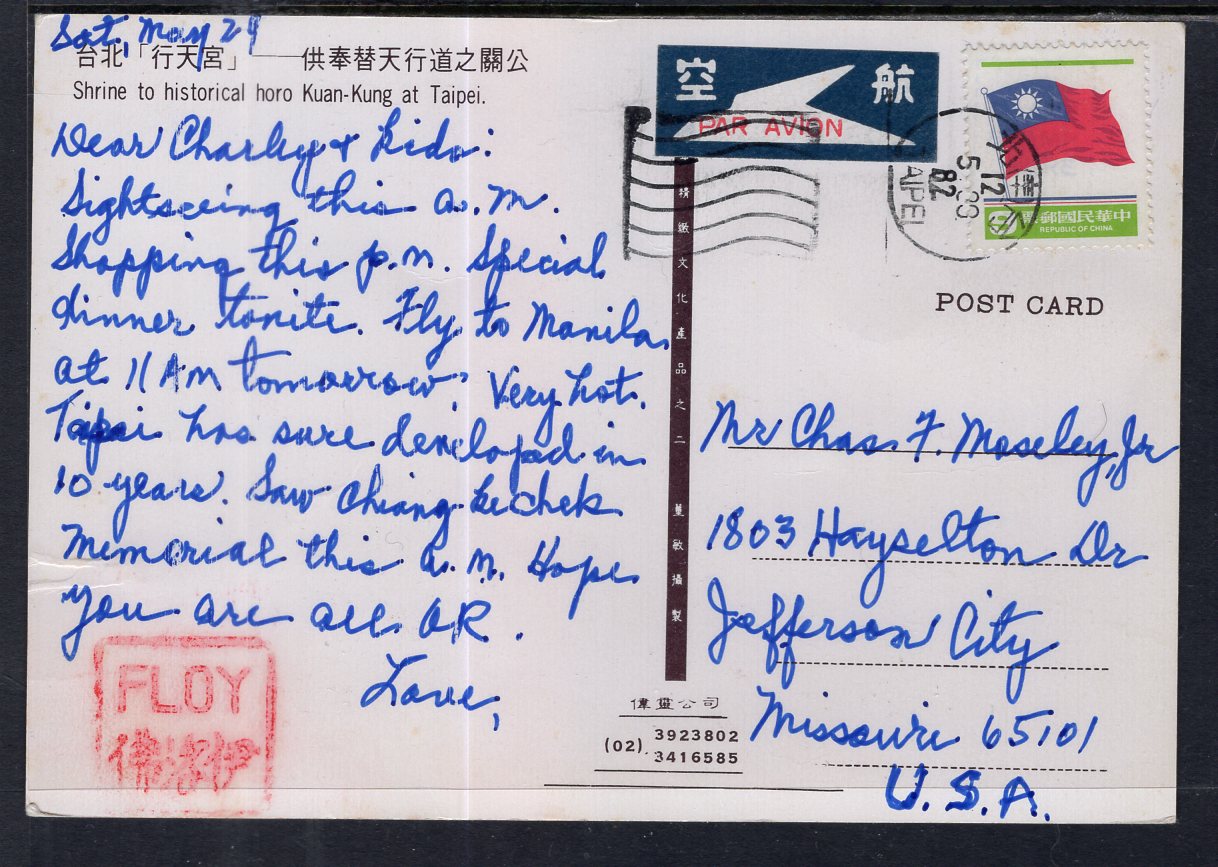 Sat, May 29
台北「行天宮」——供奉替天行道之關公
Shrine to historical horo Kuan-Kung at Taipei.
Dear Charley &
Sightseeing this a.m.
Shopping this p.m. Special
dinner tonite. Fly to Manila
at 11 AM tomorrow. Very hot.
Taipai has sure developed in
10 years. Saw Chiang Kechek
Memorial this a.m. Hope
you are all OK.
Love,
FLOY
伊洛佛
精緻文化產品之二 董敏攝製
偉靈公司
(02) 3923802
3416585
航空
PAR AVION
TAIPEI
12
82
中華民國郵票
REPUBLIC OF CHINA
POST CARD
Mr Chas. F. Moseley, Jr
1803 Hayselton Dr
Jefferson City
Missouri 65101
U.S.A.